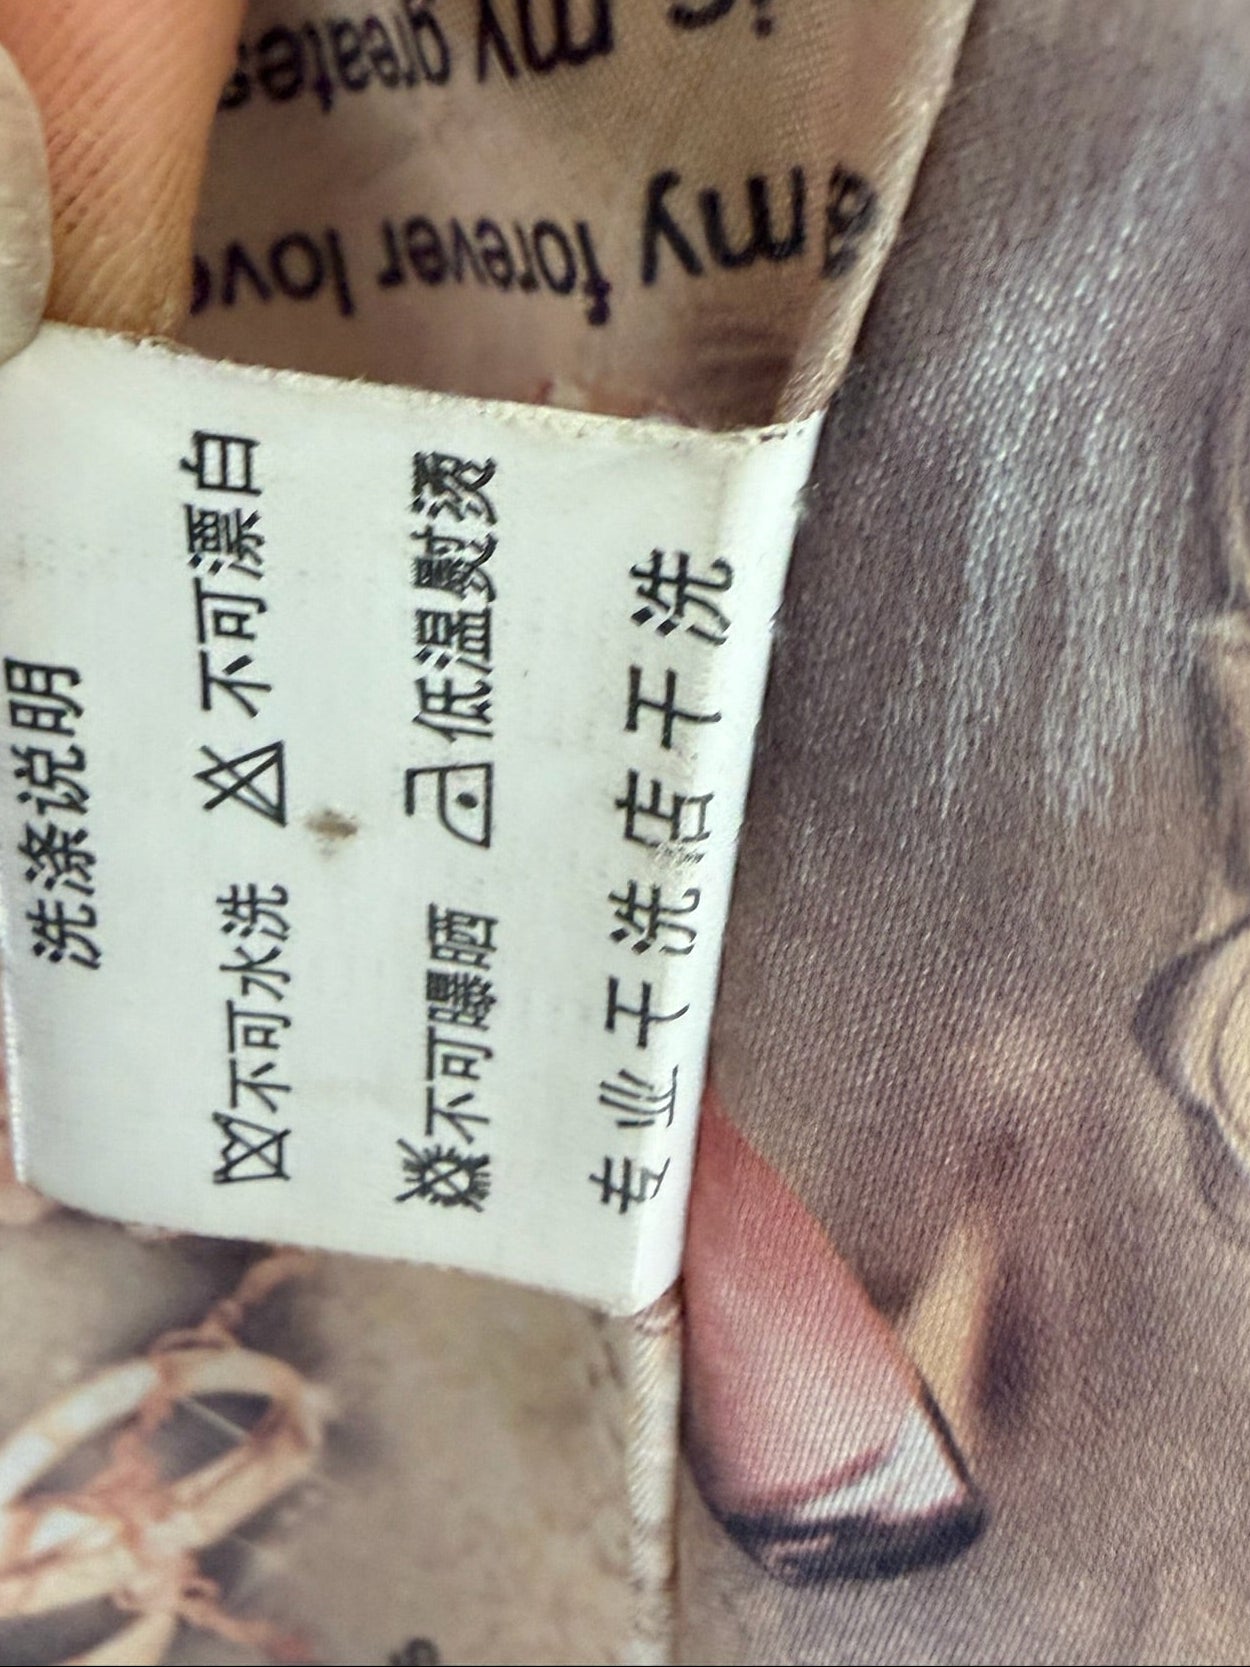 洗涤说明
不可水洗 不可漂白
不可曝晒 低温熨烫
专业干洗店干洗
is my greates
my forever love